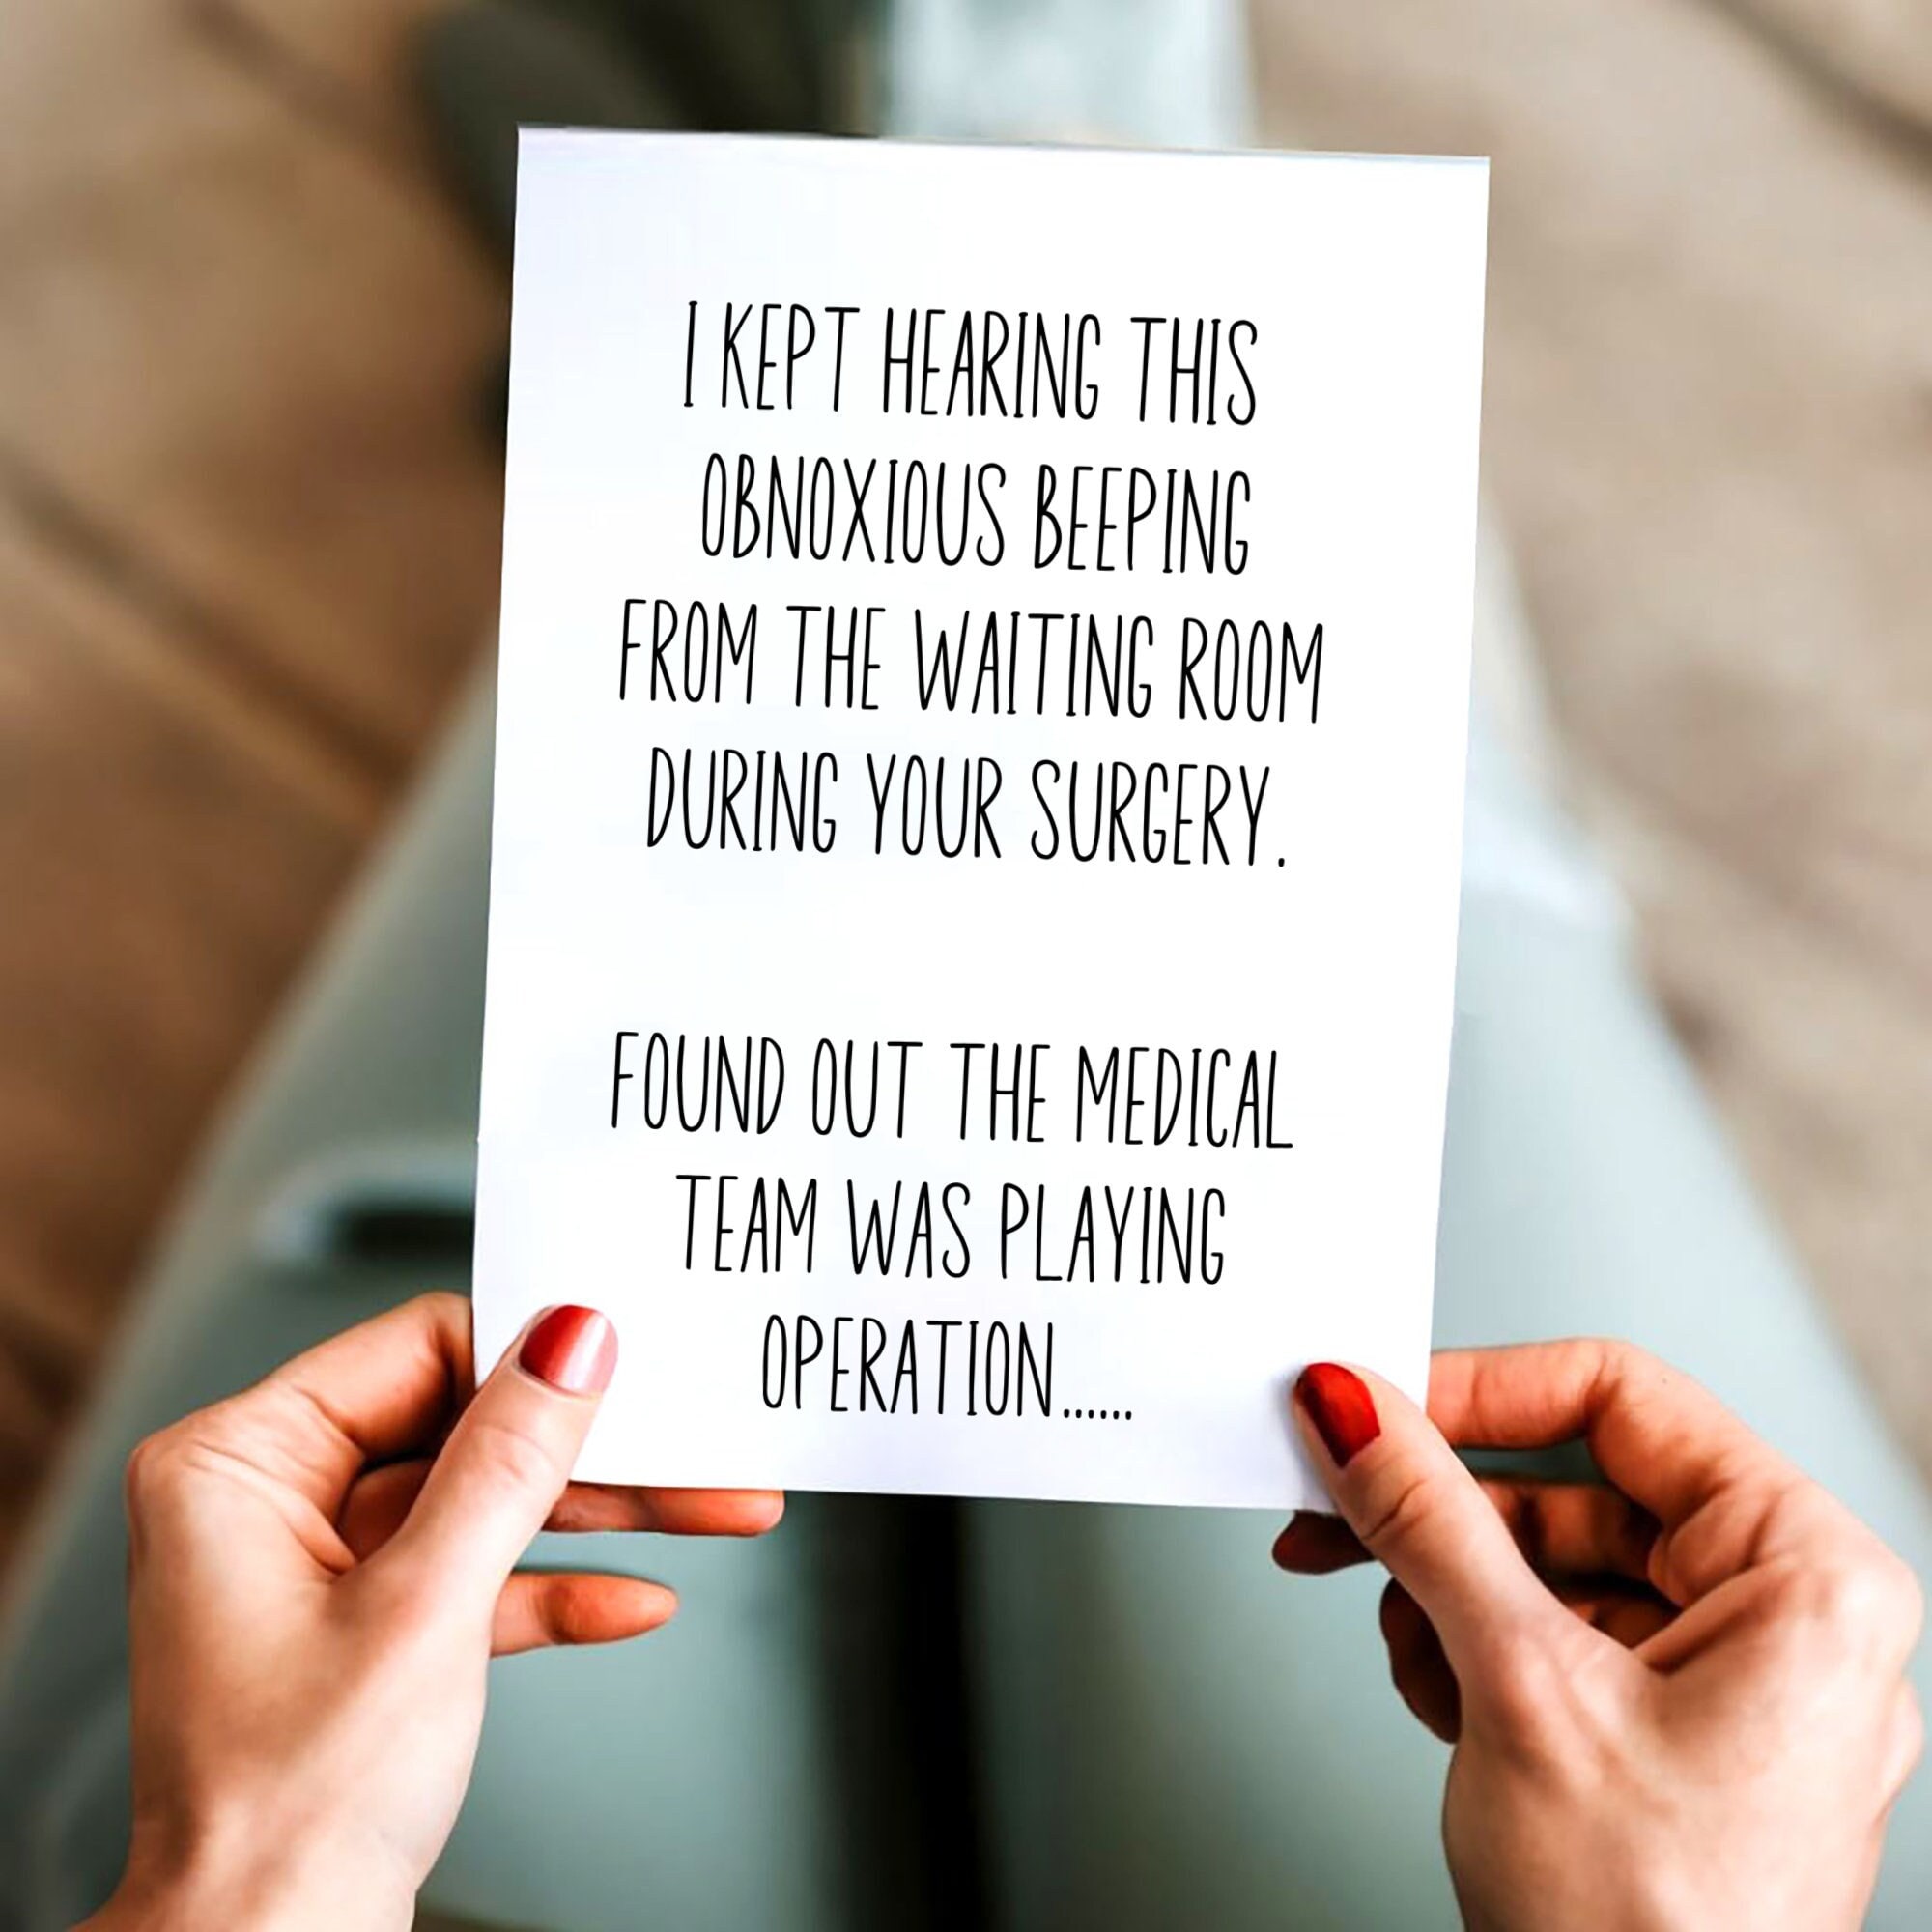 I KEPT HEARING THIS
OBNOXIOUS BEEPING
FROM THE WAITING ROOM
DURING YOUR SURGERY.
FOUND OUT THE MEDICAL
TEAM WAS PLAYING
OPERATION......